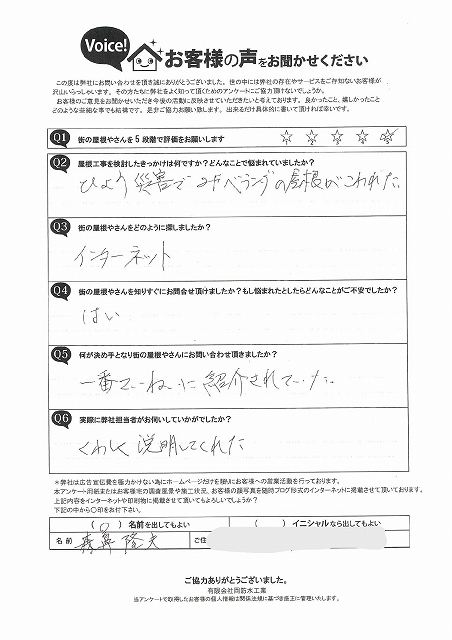 Voice! お客様の声をお聞かせください
この度は弊社にお問い合わせを頂き誠にありがとうございました。世の中には弊社の存在やサービスをご存知ないお客様が
沢山いらっしゃいます。その方たちに弊社をよく知って頂くためのアンケートにご協力頂けないでしょうか。
お客様のご意見をお聞かせいただき今後の活動に反映させていただきたいと考えております。良かったこと、嬉しかったこと
どのような些細な事でも結構です。是非ご協力お願い致します。出来るだけ具体的に書いて頂ければ幸いです。
Q1 街の屋根やさんを5段階で評価をお願いします ☆ ☆ ☆ ☆ ☆
Q2 屋根工事を検討したきっかけは何ですか?どんなことで悩まれていましたか?
ひょう災害で 2Fベランダの屋根がこわれた
Q3 街の屋根やさんをどのように探しましたか?
インターネット
Q4 街の屋根やさんを知りすぐにお問合せ頂けましたか?もし悩まれたとしたらどんなことがご不安でしたか?
はい
Q5 何が決め手となり街の屋根やさんにお問い合わせ頂きましたか?
一番てーねいに紹介されていた。
Q6 実際に弊社担当者がお伺いしていかがでしたか?
くわしく説明してくれた
*弊社は広告宣伝費を極力かけない為にホームページだけを頼りにお客様への営業活動を行っております。
本アンケート用紙またはお客様宅の調査風景や施工状況、お客様の顔写真を随時ブログ形式のインターネットに掲載させて頂いております。
上記内容をインターネットや印刷物に掲載させて頂いてもよろしいでしょうか?
下記の中から〇印をお付け下さい。
( ○ ) 名前を出してもよい ( ) イニシャルなら出してもよい
名前 隆夫 ご住
ご協力ありがとうございました。
有限会社岡笛木工業
当アンケートで取得したお客様の個人情報は関係法規に基づき適正に管理いたします。